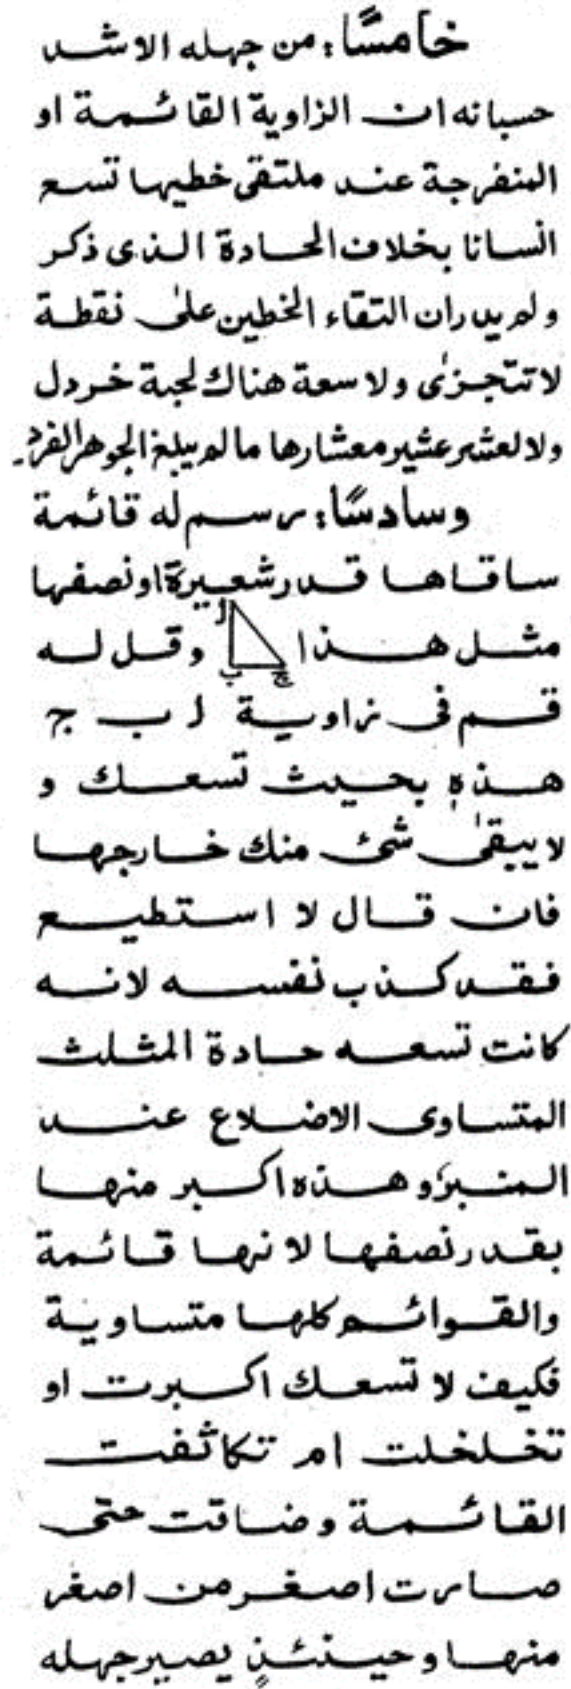 خامسًا: من جهله الاشد
حسبانه ان الزاوية القائمة او
المنفرجة عند ملتقى خطيها تسع
انسانا بخلاف الحادة الذى ذكر
ولم يدر ان التقاء الخطين على نقطة
لا تتجزى ولا سعة هناك لحبة خردل
ولا لعشر عشير معشارها ما لم يبلغ الجوهر الفرد۔
وسادسًا: رسم له قائمة
ساقاها قدر شعيرة او نصفها
مثل هذا ا ب ج وقل له
قم فى زاوية ا ب ج
هذه بحيث تسعك و
لا يبقى شئ منك خارجها
فان قال لا استطيع
فقد كذب نفسه لانه
كانت تسعه حادة المثلث
المتساوى الاضلاع عند
المنبر وهذه اكبر منها
بقدر نصفها لانها قائمة
والقوائم كلها متساوية
فكيف لا تسعك اكبرت او
تخلخلت ام تكاثفت
القائمة وضاقت حتى
صارت اصغر من اصغر
منها وحينئذٍ يصير جهله